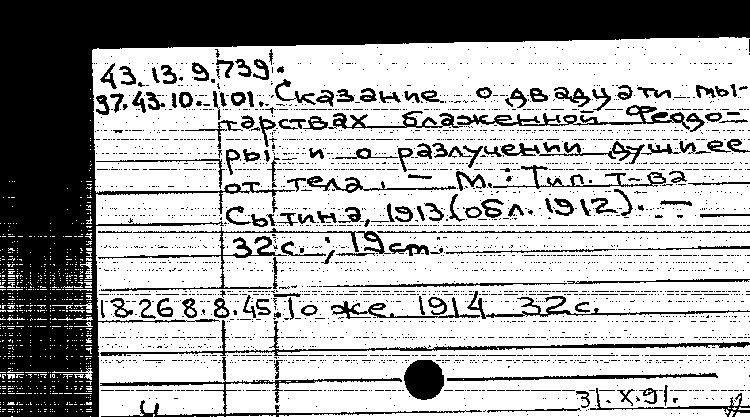 43.13.9.739.
37.43.10.1101. Сказание о двадцати мы-
тарствах блаженной Феодо-
ры и о разлучении души ее
от тела. — М.: Тип. т-ва
Сытина, 1913 (обл. 1912). —
32с.; 19см.
18.268.8.45. То же. 1914. 32с.
31.X.91.
4